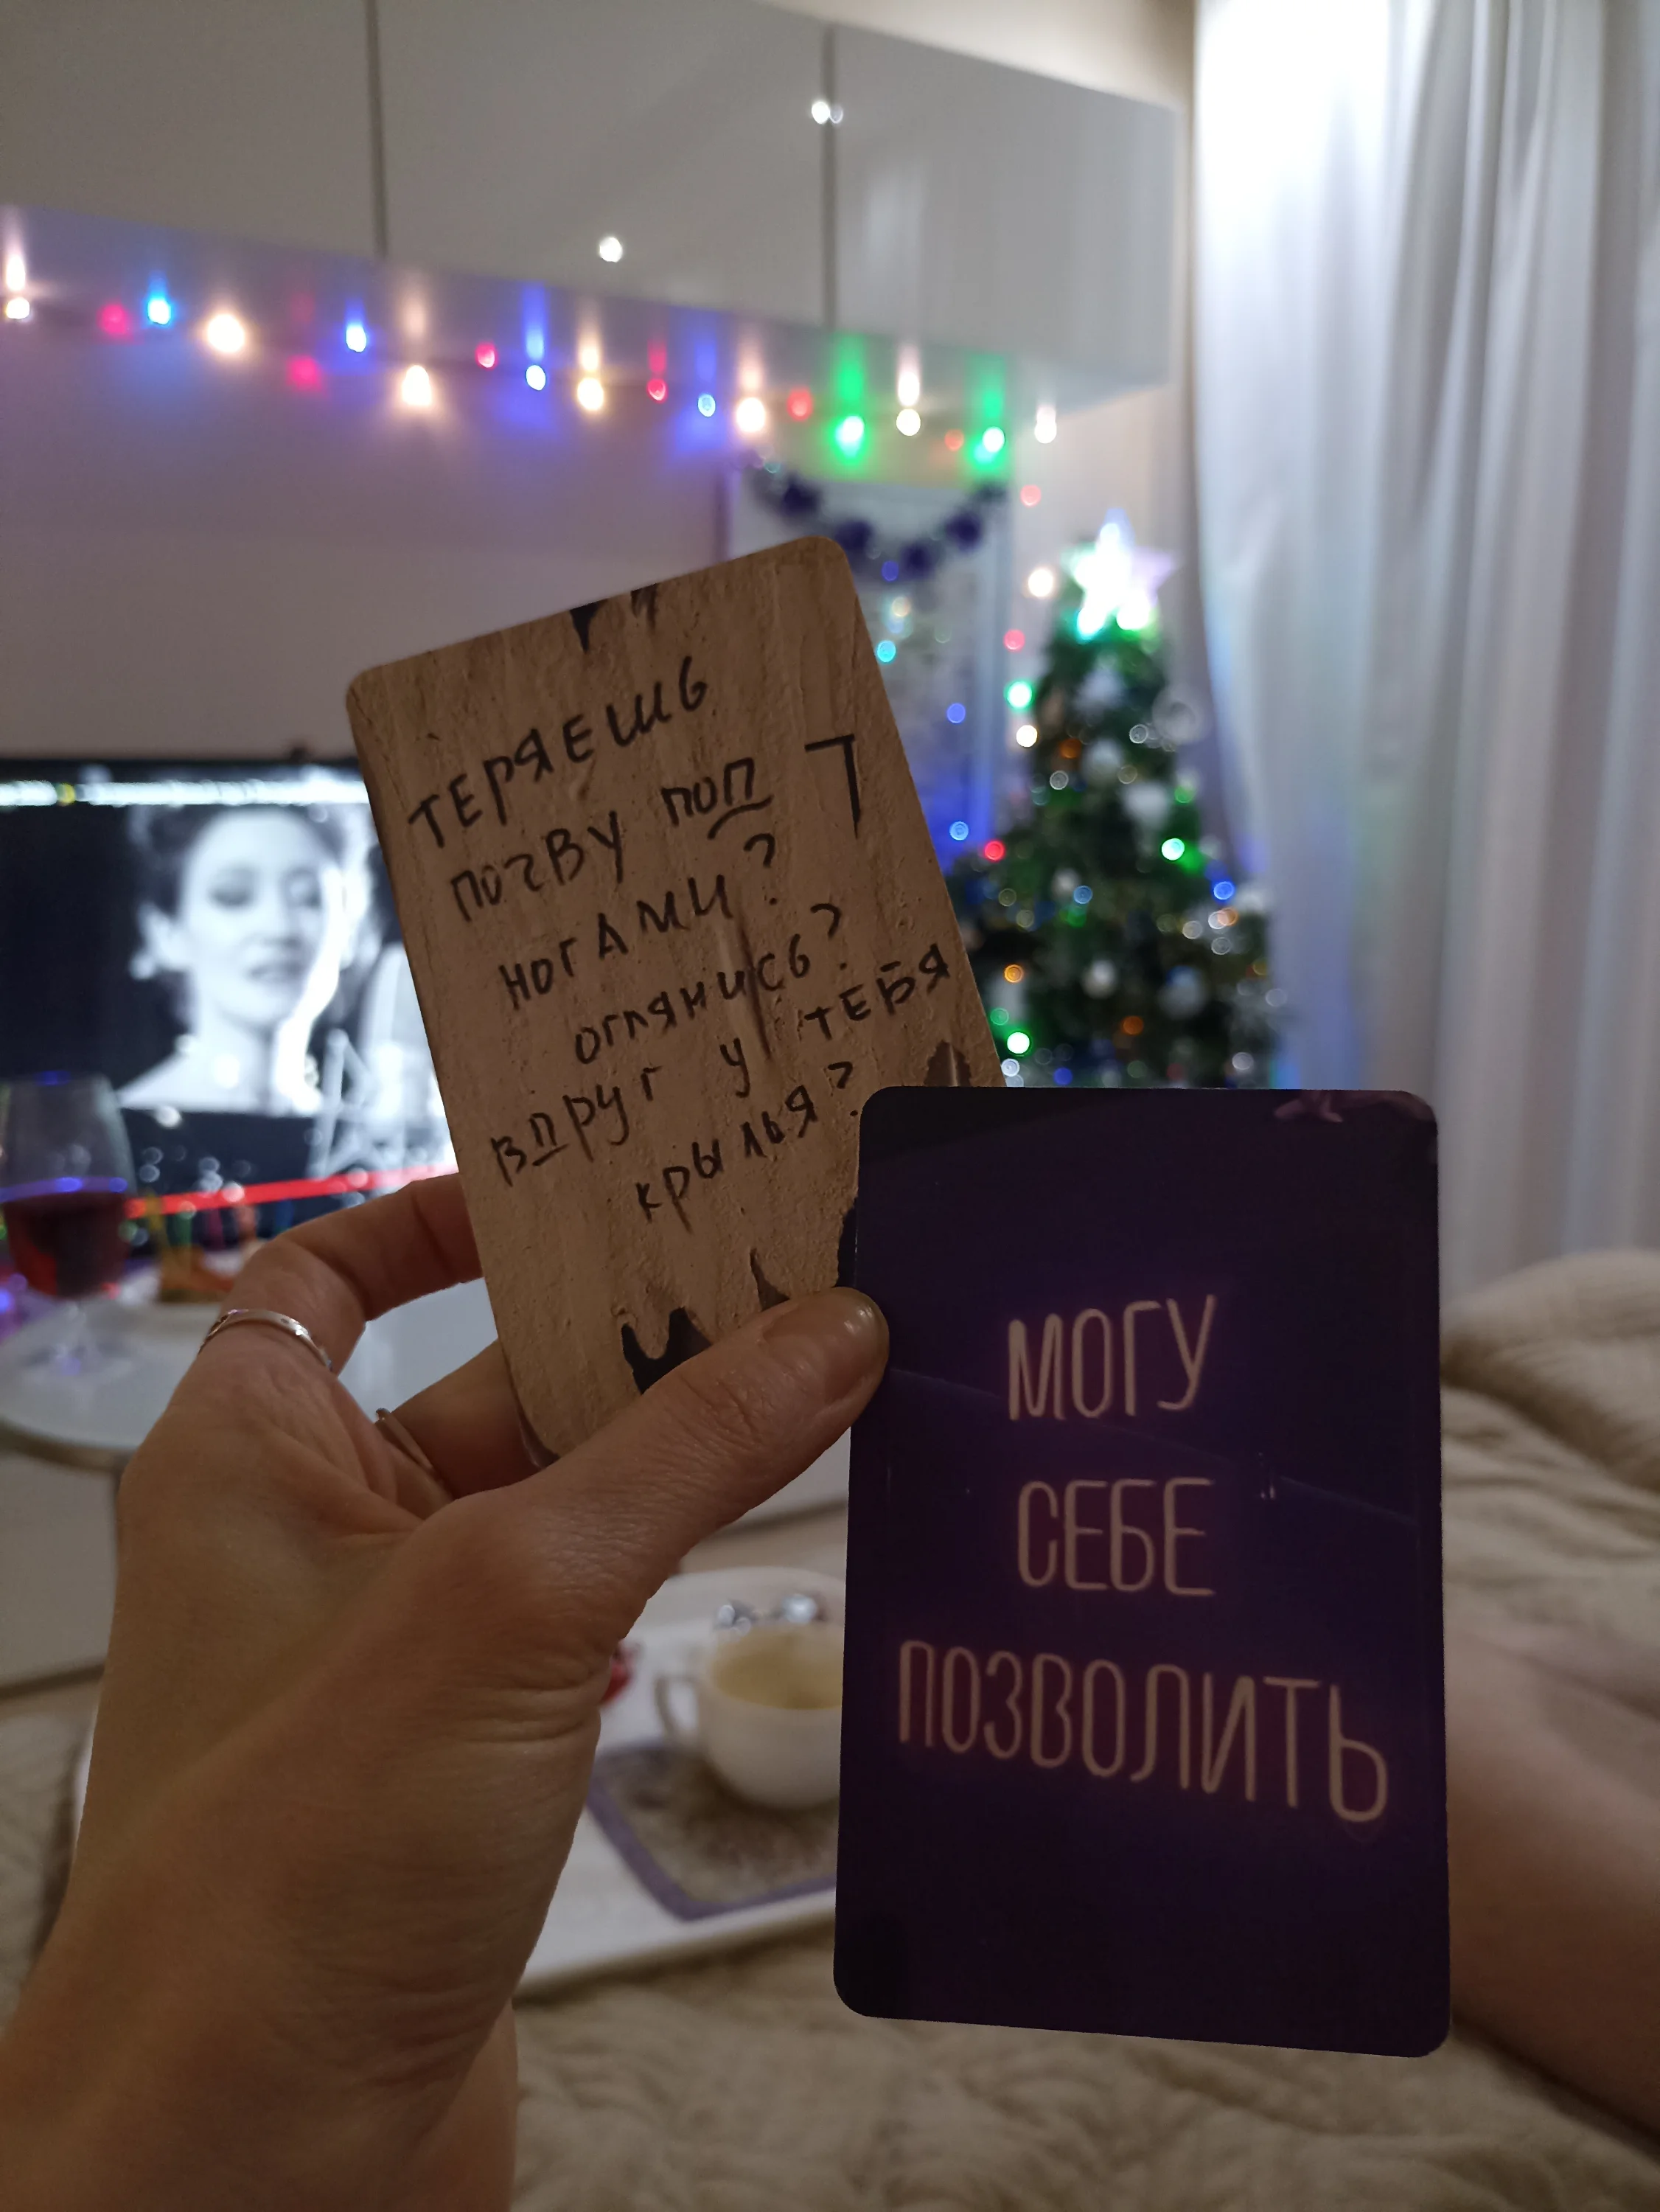 ТЕРЯЕШЬ
ПОЧВУ ПОД
НОГАМИ?
ОГЛЯНИСЬ?
ВДРУГ У ТЕБЯ
КРЫЛЬЯ?
МОГУ
СЕБЕ
ПОЗВОЛИТЬ